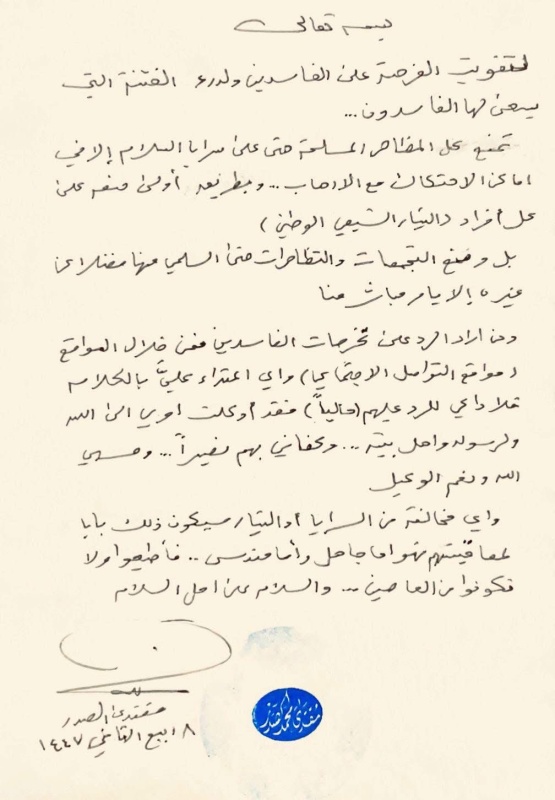 بسمه تعالى
لتفويت الفرصة على الفاسدين ولدرء الفتنة التي
يسعى لها الفاسدون...
تمنع كل المظاهر المسلحة حتى على سرايا السلام إلا في
اماكن الاحتكاك مع الارهاب... وبطريقة أولى منعه على
كل أفراد (التيار الشيعي الوطني)
بل ومنع التجمعات والتظاهرات حتى السلمي منها فضلا عن
غيره إلا بأمر مباشر منا
ومن اراد الرد على تخرصات الفاسدين فمن خلال المواقع
(مواقع التواصل الاجتماعي) واي اعتداء عليَّ بالكلام
فلا داعي للرد عليهم (حالياً) فقد أوكلت امري الى الله
ولرسوله واهل بيته... وكفاني بهم نصيراً... وحسبي
الله ونعم الوكيل
واي مخالفة من السرايا أو التيار سيكون ذلك بابا
لمعاقبتهم فهو اما جاهل وأما مندس.. فأطيعوا ولا
تكونوا من العاصين... والسلام على اهل السلام
مقتدى الصدر
٨ ربيع الثاني ١٤٤٧